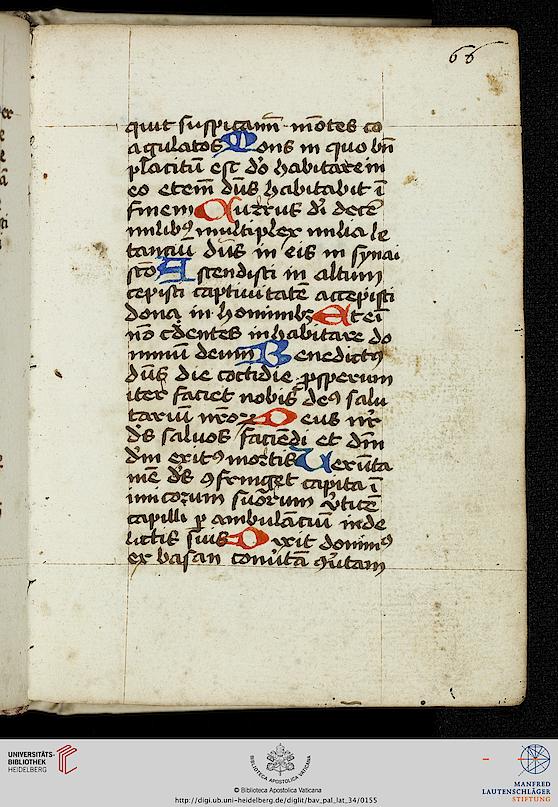 66
quit suspicamī · mōtes co
agulatos Mons in quo bn̄
placitū est dō habitare in
eo etem̄ dn̄s habitabit ī
finem Currus dī decē
milibꝯ multiplex milia le
tanciū dn̄s in eis in synai
sc̄o Ascendisti in altum
cepisti captiuitatē accepisti
dona in hominibꝫ Eten̄
nō c̄dentes inhabitare do
minū deum Benedictꝯ
dn̄s die cottidie ꝓsperum
iter faciet nobis deꝯ salu
tariū nr̄oꝝ Deus nr̄
ds̄ saluos faciēdi et dn̄i
dn̄i exitꝯ mortis Ueru̅ta
mē ds̄ ꝯfringet capita ī
imicorum suorum v̄ticē
capilli ꝑ ambulāciū in de
lictis suis Dixit dominꝯ
ex basan conu̅tā ꝯu̅tam
UNIVERSITÄTS-
BIBLIOTHEK
HEIDELBERG
BIBLIOTHECA APOSTOLICA VATICANA
© Biblioteca Apostolica Vaticana
http://digi.ub.uni-heidelberg.de/diglit/bav_pal_lat_34/0155
MANFRED
LAUTENSCHLÄGER
STIFTUNG